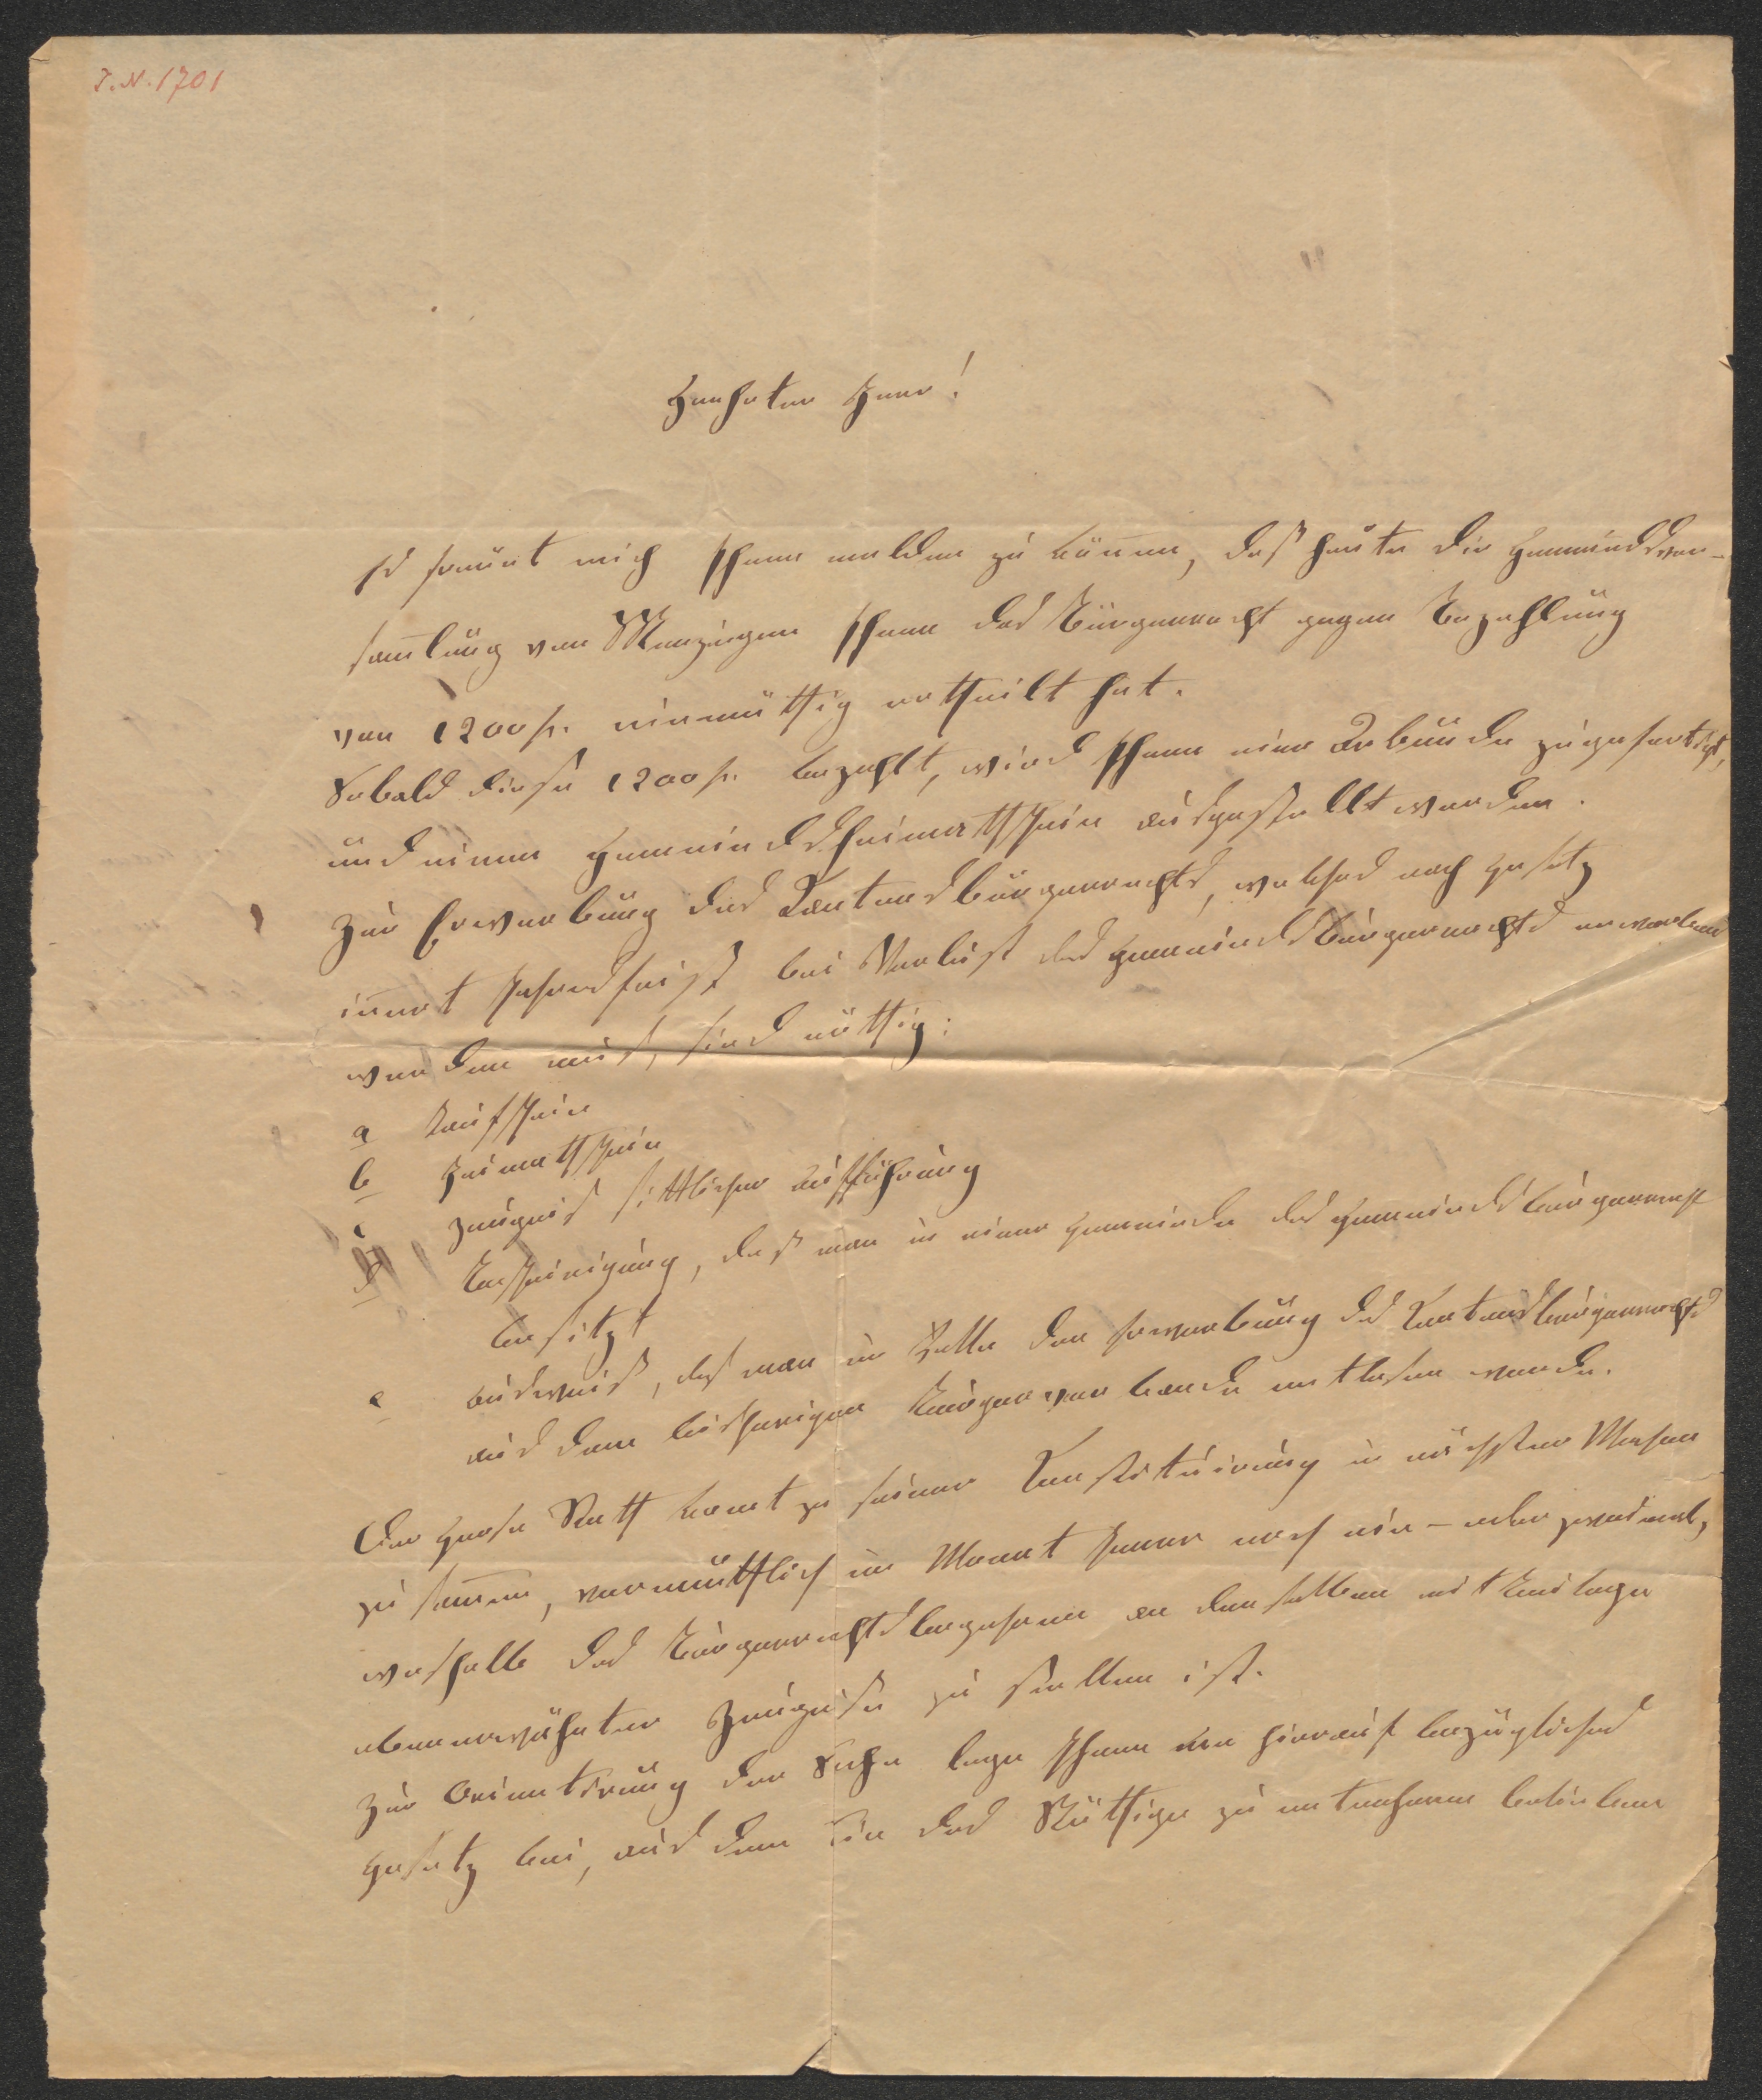 I.N. 1701
Geehrter Herr!
Es freuet mich Ihnen melden zu können, daß heute die Gemeindsver-
sammlung von Menzingen Ihnen das Bürgerrecht gegen Bezahlung
von 1200 fr. einmüthig ertheilt hat.
Sobald diese 1200 fr. bezahlt, wird Ihnen eine Urkunde zugefertigt,
und einen Gemeindsheimathschein ausgestellt werden.
Zur Erwerbung des Kantonsbürgerrechts, welches nach Gesetz
innert Jahresfrist bei Verlust des Gemeindsbürgerrechts erworben
werden muß, sind nöthig:
a Taufschein
b Heimathschein
c Zeugniß sittlicher Aufführung
d Bescheinigung, daß man in einer Gemeinde das Gemeindsbürgerrecht
besitzt
e Ausweis, daß man im Falle der Erwerbung des Kantonsbürgerrechts
aus dem bisherigen Bürgerverbande entlassen werde.
Der Große Rath komt zu seiner Konstituirung in nächster Wochen
zusammen, vermuthlich im Monat Jenner noch ein- oder zweimal,
weshalb das Bürgerrechtsbegehren an denselben mit Beilage
obenerwähnter Zeugniße zu stellen ist.
Zur Orientirung der Sache lege Ihnen ein hierauf bezügliches
Gesetz bei, aus dem Sie das Nöthige zu entnehmen belieben